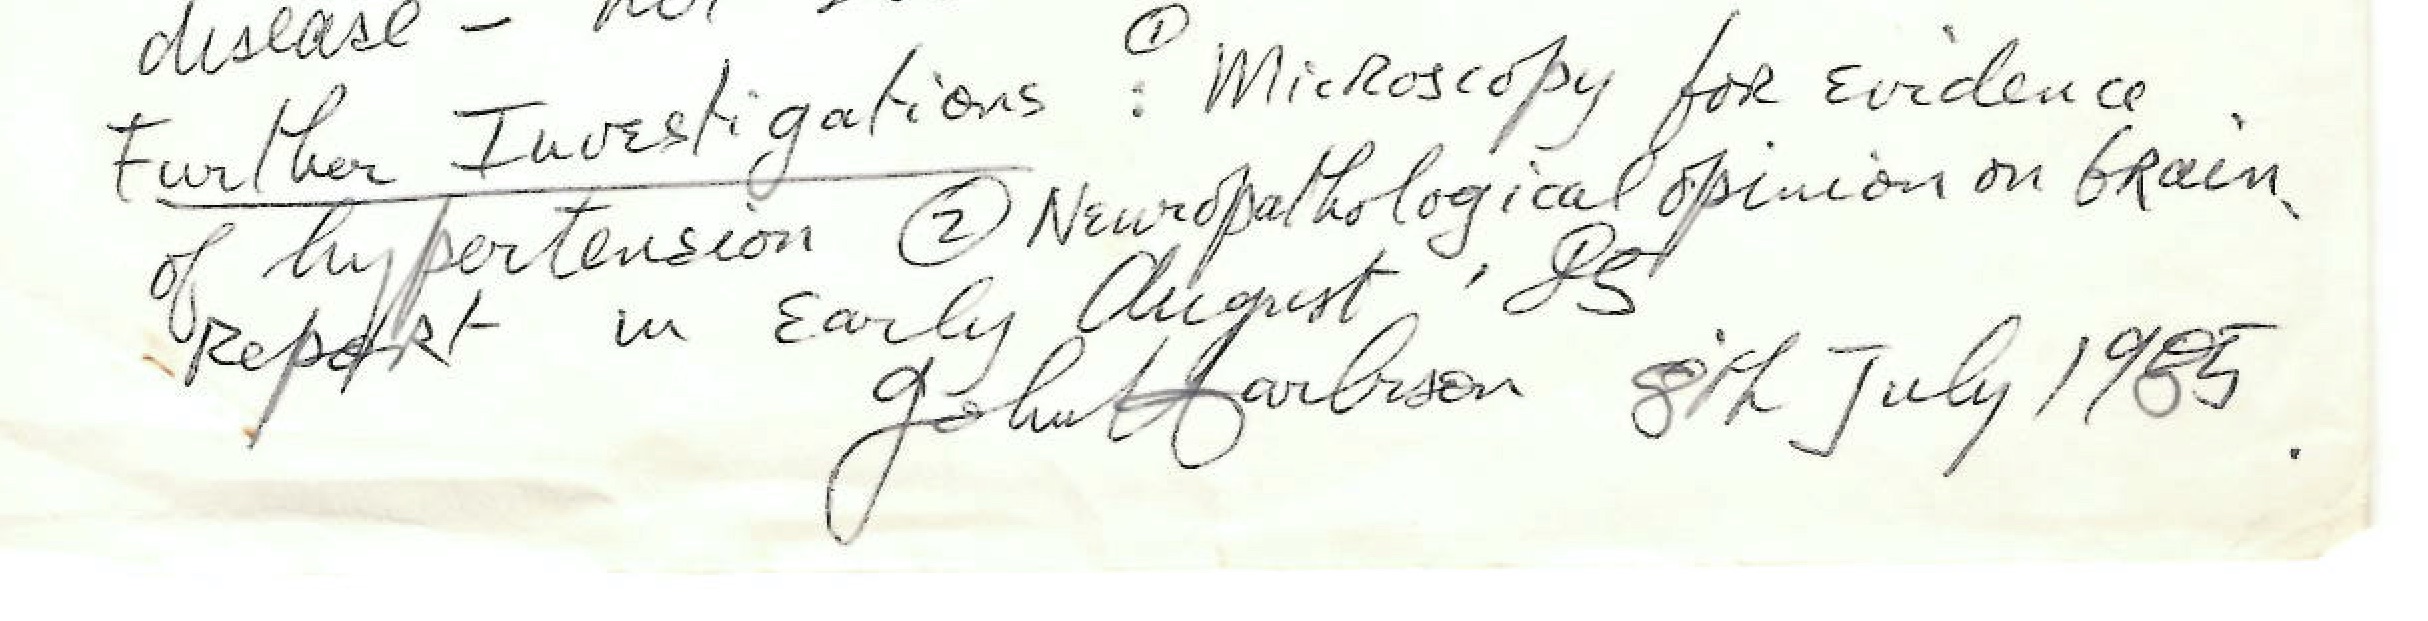 disease - not
Further Investigations : ① Microscopy for Evidence
of hypertension ② Neuropathological opinion on brain.
Report in Early August, 85
John Harbison 8th July 1985.